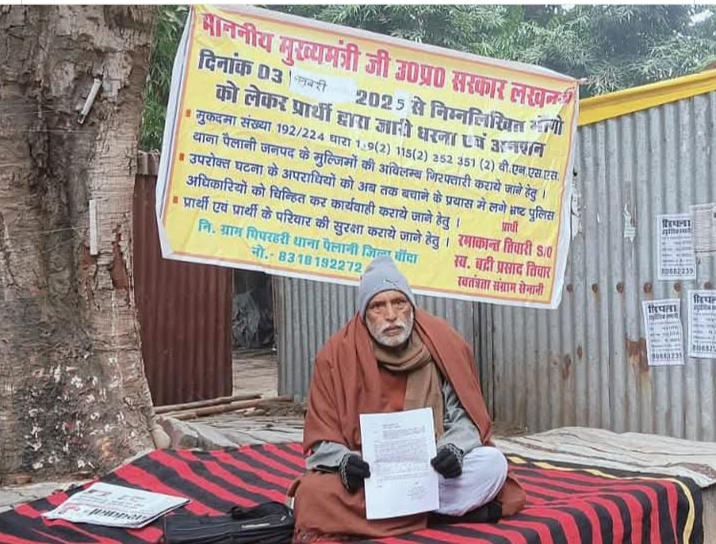 माननीय मुख्यमंत्री जी उ0प्र0 सरकार लखनऊ
दिनांक 03 जनवरी 2025 से निम्नलिखित मांगो
को लेकर प्रार्थी द्वारा जारी धरना एवं अनशन
मुकदमा संख्या 192/224 धारा 115(2) 352 351 (2) बी.एन.एस.एस.
थाना पैलानी जनपद के मुल्जिमों की अविलम्ब गिरफ्तारी कराये जाने हेतु ।
उपरोक्त घटना के अपराधियों को अब तक बचाने के प्रयास मे लगे भ्रष्ट पुलिस
अधिकारियों को चिन्हित कर कार्यवाही कराये जाने हेतु ।
प्रार्थी एवं प्रार्थी के परिवार की सुरक्षा कराये जाने हेतु ।
नि. ग्राम पिपरहरी थाना पैलानी जिला बाँदा
नो.- 8318192272
प्रार्थी
रमाकान्त तिवारी S/O
स्व. बद्री प्रसाद तिवार
स्वतंत्रता संग्राम सेनानी